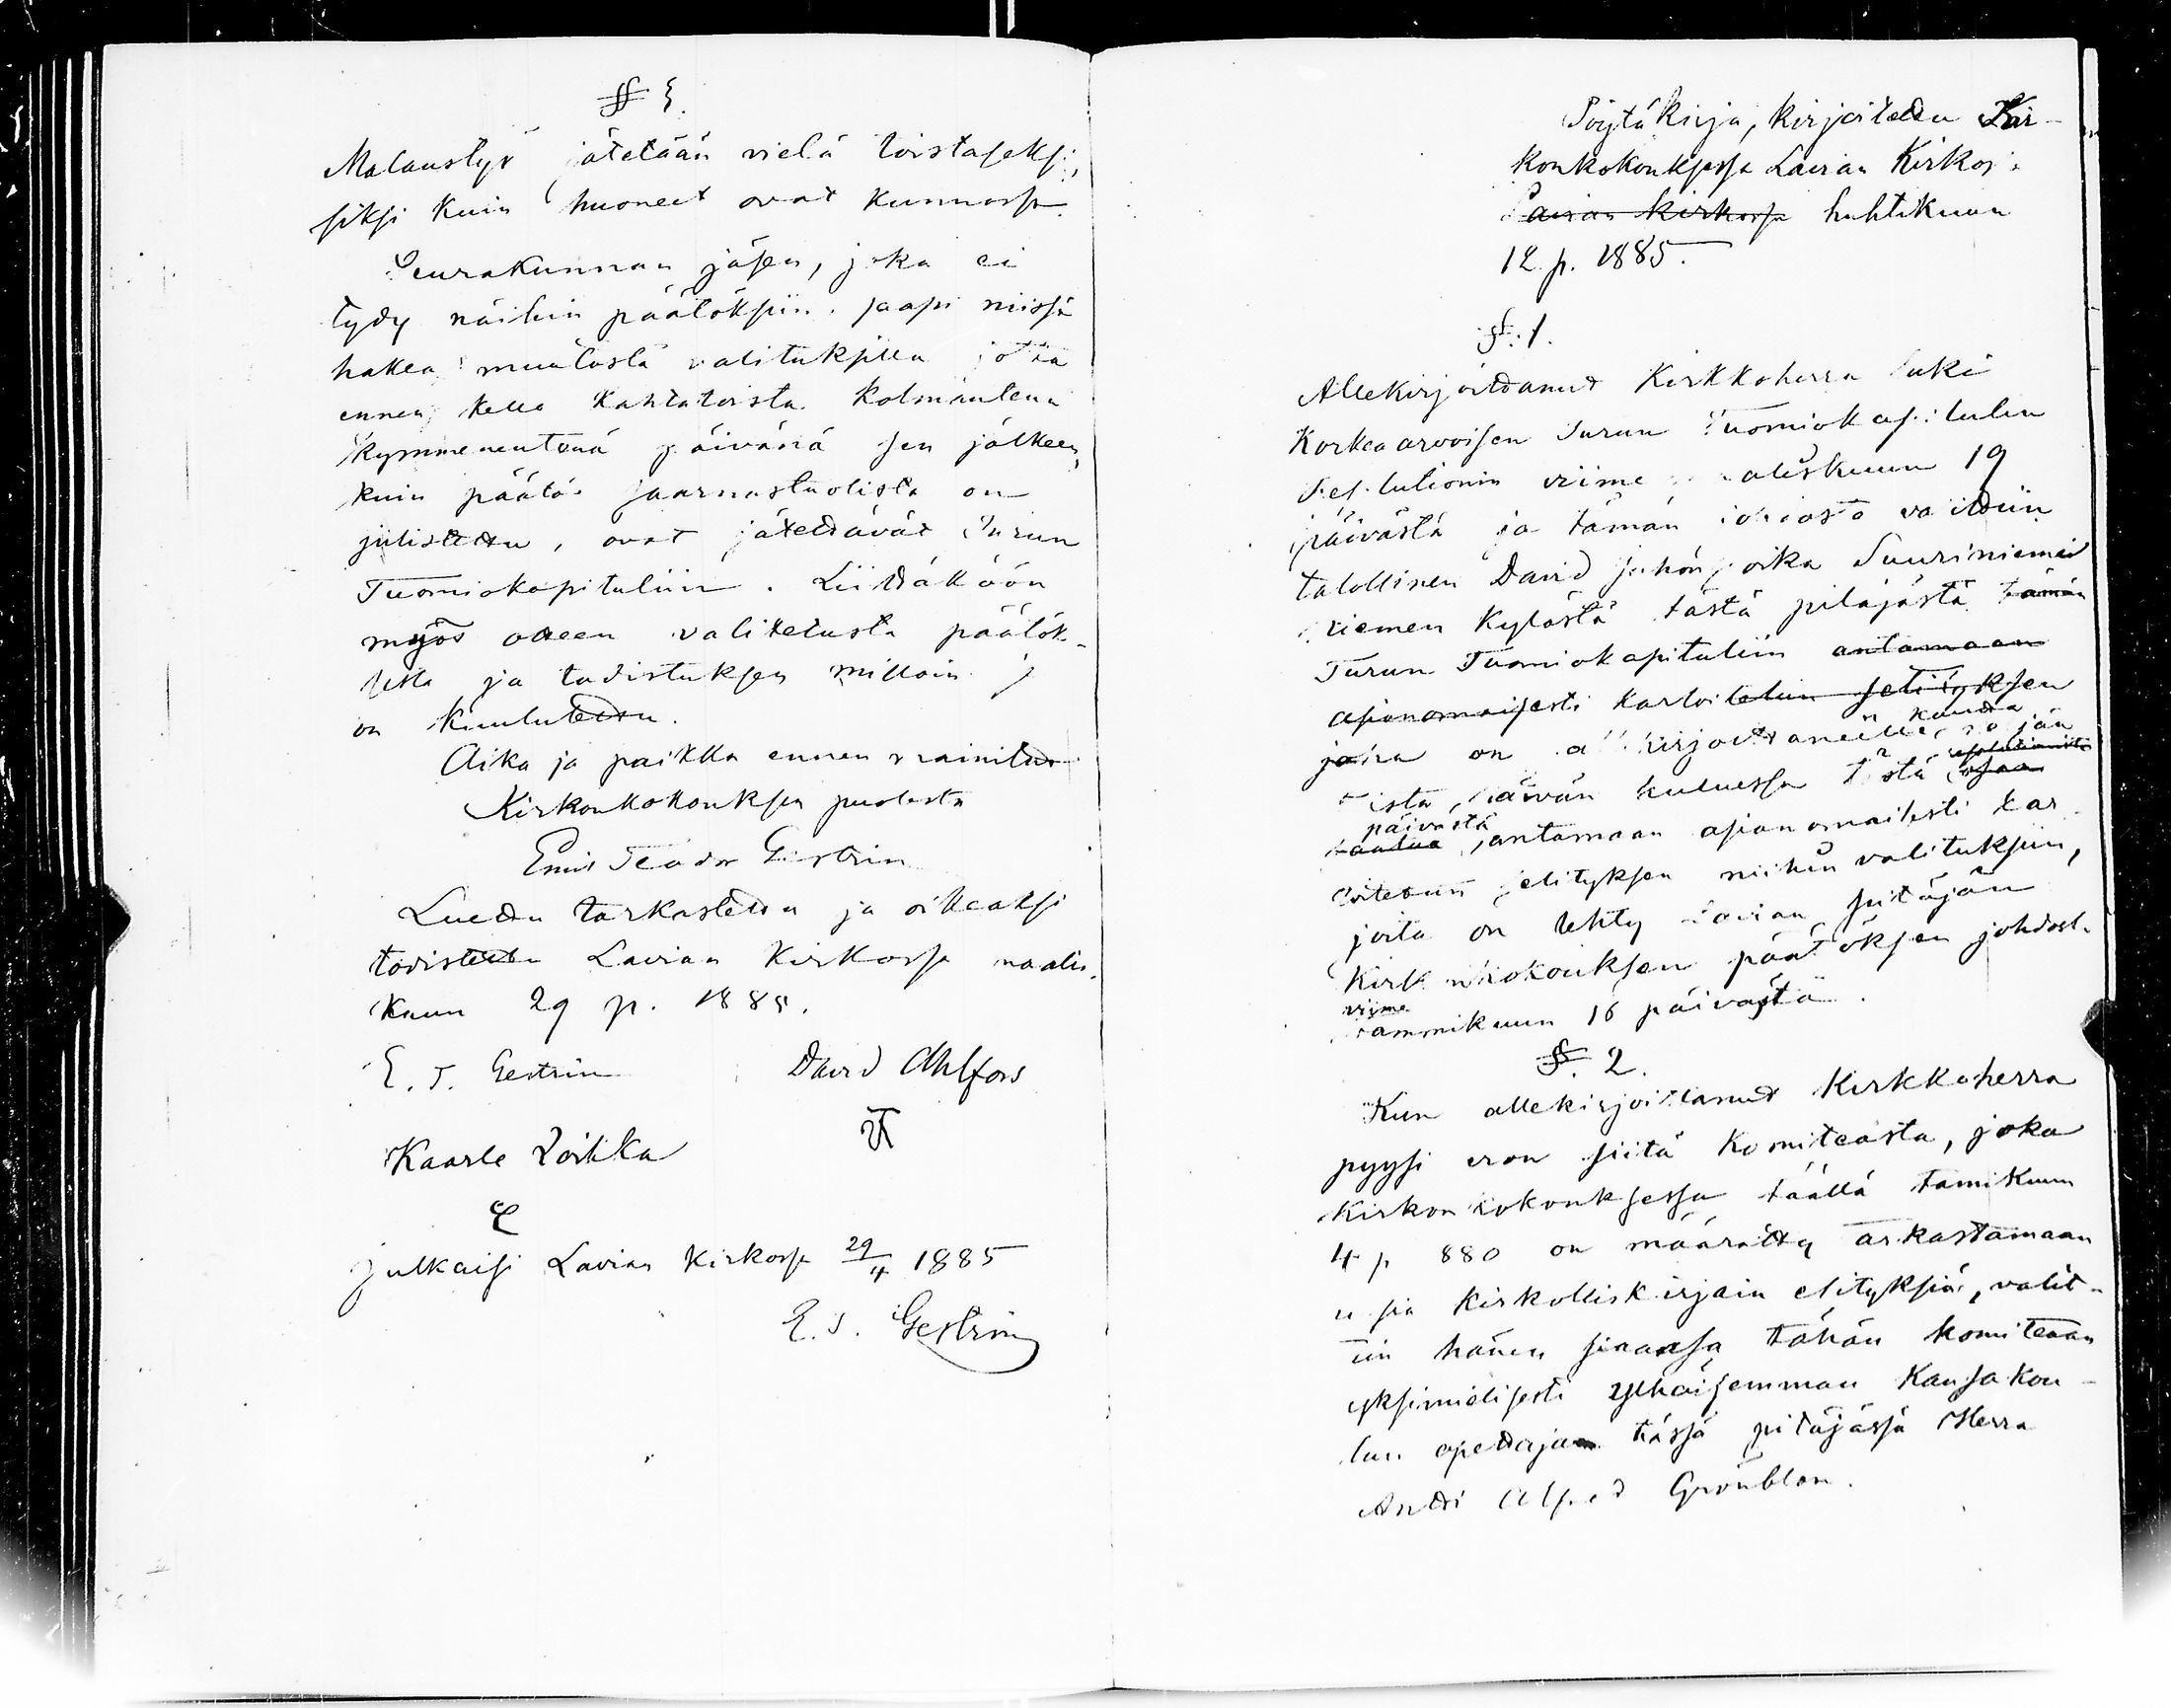 § 3.
Malaustyö jätetään vielä toistaseksi,
siksi kuin huoneet ovat kunnossa.
Seurakunnan jäsen, joka ei
tydy näihin päätöksiin, saapi niissä
hakea muutosta valituksilla jotka
ennen kello kahtatoista kolmantena
kymmenentenä päivänä sen jälkeen,
kuin päätös saarnastuolista on
julistettu, ovat jätettävät Turun
Tuomiokapituliin. Liittäköön
myös otteen valitetusta päätök-
sestä ja todistuksen milloin
on kuulutettu.
Aika ja paikka ennen mainitut
Kirkonkokouksen puolesta
Emil Teodor Gestrin
Luettu tarkastettu ja oikeaksi
todistettu Lavian Kirkossa maalis-
kuun 29 p. 1885.
E. T. Gestrin David Ahlfors
Kaarle Loikka
Julkaisi Lavian Kirkossa 29/4 1885
E. T. Gestrin
Pöytäkirja, kirjoitettu Kir-
konkokouksessa Lavian Kirkossa
Lavian kirkossa huhtikuun
12 p. 1885.
§. 1.
Allekirjoittanut Kirkkoherra luki
Korkeaarvoisen Turun Tuomiokapitulin
Resolutionin viime maaliskuun 19
päivästä ja tämän johdosta valittiin
talollinen David Juhonpoika Suuriniemi
niemen kylästä tästä pitäjästä tämän
Turun Tuomiokapituliin antamaan
asianomaisesti kartoitetun selityksen
jona on allekirjoittaneelle
kautta
päivän kuluessa tästä resolutionista
osaan
päivästä
antamaan asianomaisesti kar-
toitetun selityksen niihin valituksiin,
joita on tehty Lavian pitäjän
Kirkonkokouksen päätöksen johdost.
viime
tammikuun 16 päivästä.
§. 2.
Kun allekirjoittanut Kirkkoherra
pyysi eron siitä Komiteasta, joka
Kirkonkokouksessa täällä tamikuun
4 p 880 on määrätty tarkastamaan
uusia Kirkolliskirjain esityksiä, valit-
tiin hänen siaansa tähän komiteaan
yksimielisesti ylhäisemman Kansakou-
lun opettajan tässä pitäjässä Herra
Antti Alfred Grönblom.